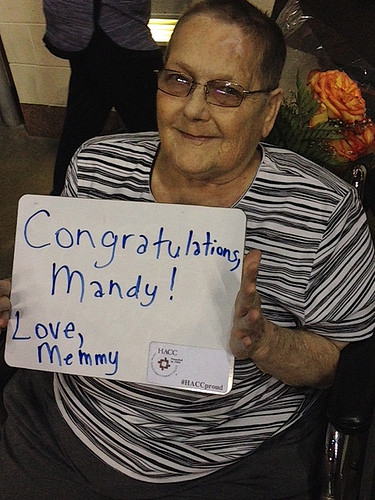 Congratulations,
Mandy!
Love,
Memmy
HACC
#HACCproud